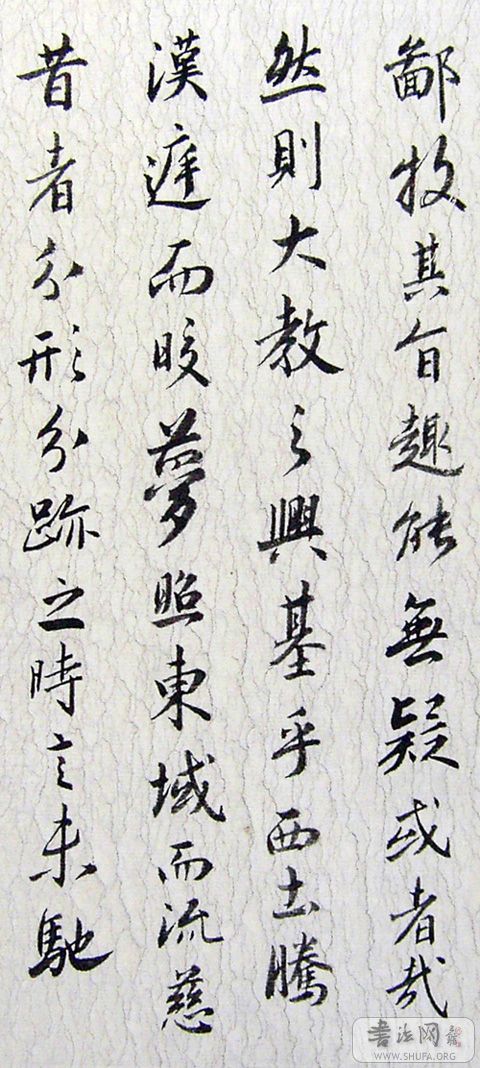 鄙投其旨趣能無疑或者哉
然則大教之興基乎西土騰
漢庭而晈夢照東域而流慈
昔者分形分跡之時言未馳
書法网
WWW.SHUFA.ORG